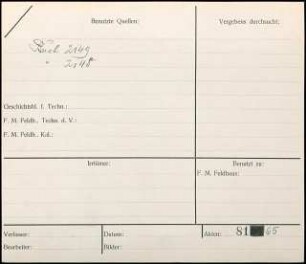 Benutzte Quellen:
Vergebens durchsucht:
Buch 2149
" 2148
Geschichtsbl. f. Techn.:
F. M. Feldh., Techn. d. V.:
F. M. Feldh., Kal.:
Irrtümer:
Benutzt zu:
F. M. Feldhaus:
Verfasser:
Datum:
Akten: 81 65
Bearbeiter:
Bilder: